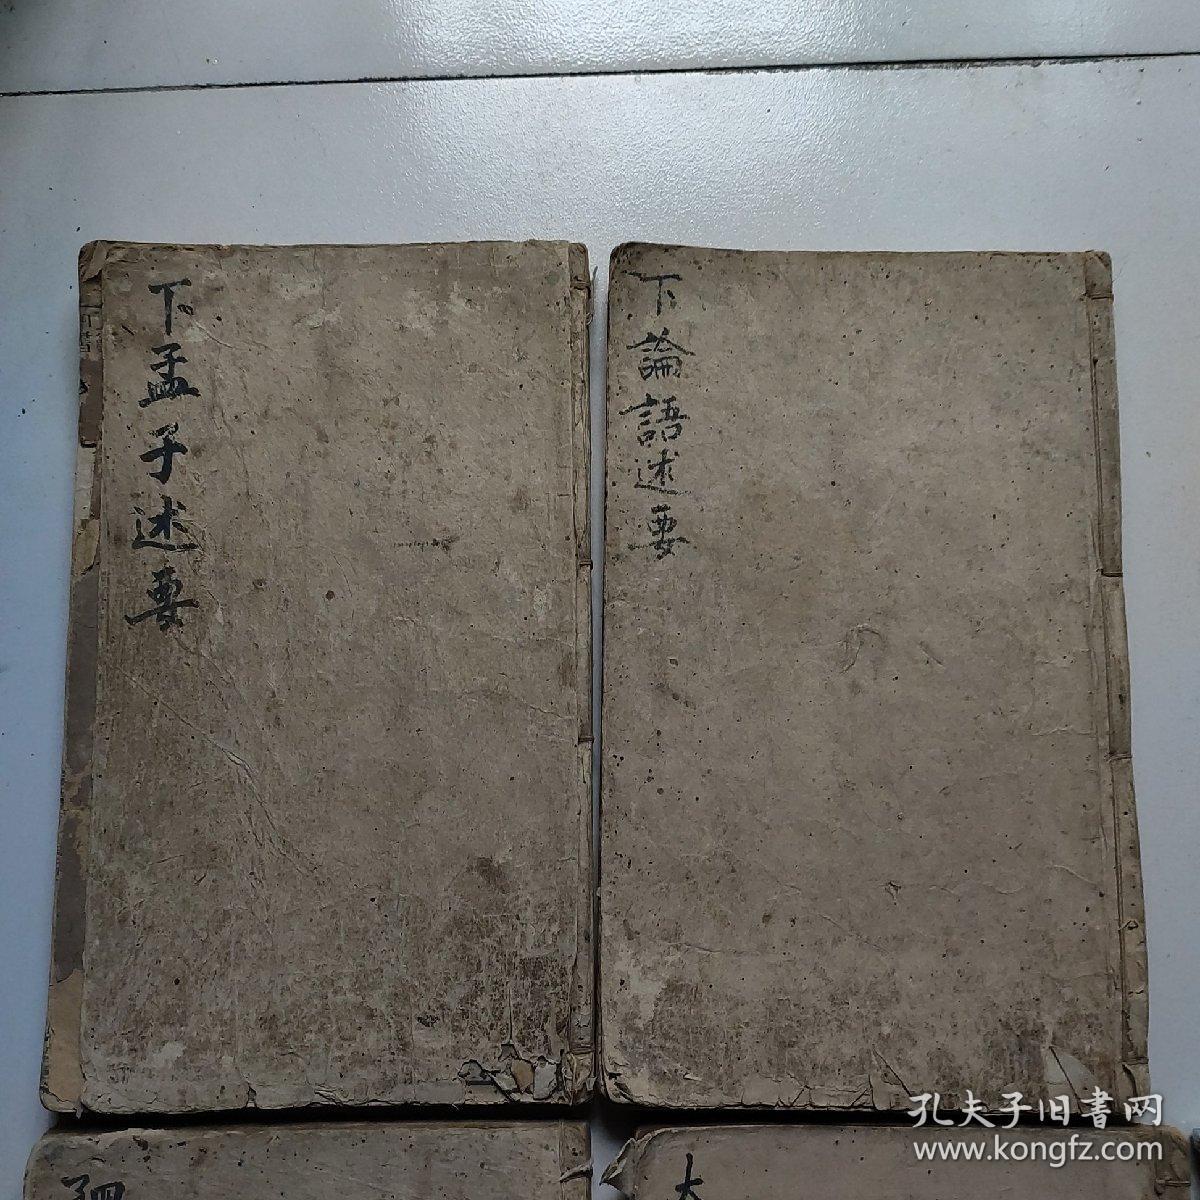 下論語述要
下孟子述要
大
孔夫子旧書网
www.kongfz.com